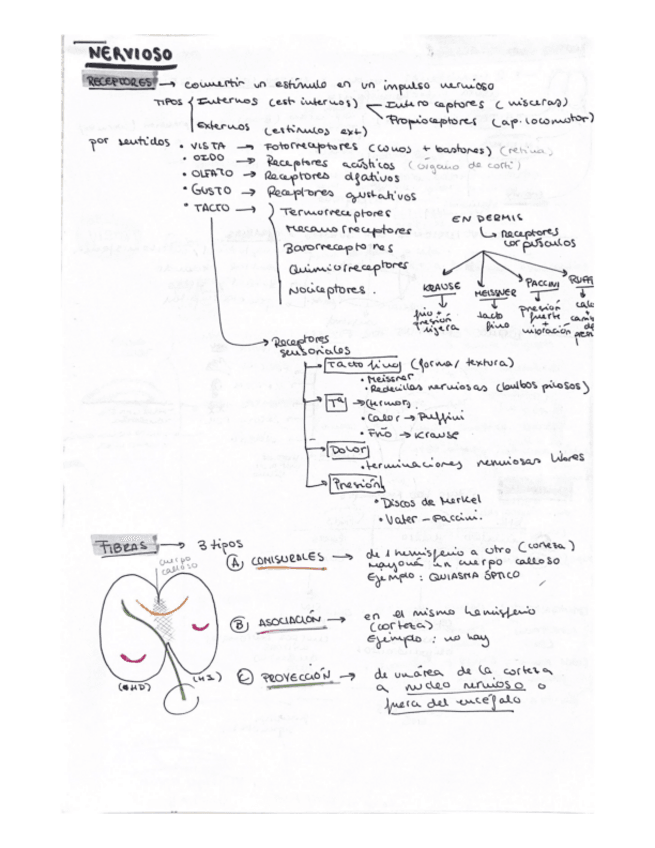 NERVIOSO
RECEPTORES → convertir un estímulo en un impulso nervioso
TIPOS Internos (est internos) Intero captores (vísceras)
Propioceptores (ap. locomotor)
Externos (estímulos ext)
por sentidos • VISTA → Fotorreceptores (conos + bastones) (retina)
• OIDO → Receptores acústicos (órgano de corti)
• OLFATO → Receptores olfativos
• GUSTO → Receptores gustativos
• TACTO → Termorreceptores
Mecano rreceptores
Barorreceptores
Quimiorreceptores
Nociceptores.
EN DERMIS
↳ Receptores corpúsculos
KRAUSE
frio + presión ligera
MEISSNER
tacto fino
PACCINI
presión fuerte + vibración
RUFFI
Receptores sensoriales
Tacto fino (forma/textura)
• Meissner
• Redecillas nerviosas (bulbos pilosos)
Tª → (termor.
• Calor → Ruffini
• Frío → Krause
Dolor
• terminaciones nerviosas libres
Presión
• Discos de Merkel
• Vater – Paccini.
FIBRAS → 3 tipos
cuerpo calloso
A COMISURALES → de 1 hemisferio a otro (corteza)
mayoría un cuerpo calloso
Ejemplo: QUIASMA ÓPTICO
B ASOCIACIÓN → en el mismo hemisferio
(corteza)
Ejemplo: no hay
(HD) (HI)
C PROYECCIÓN → de un área de la corteza
a nucleo nervioso o
fuera del encéfalo